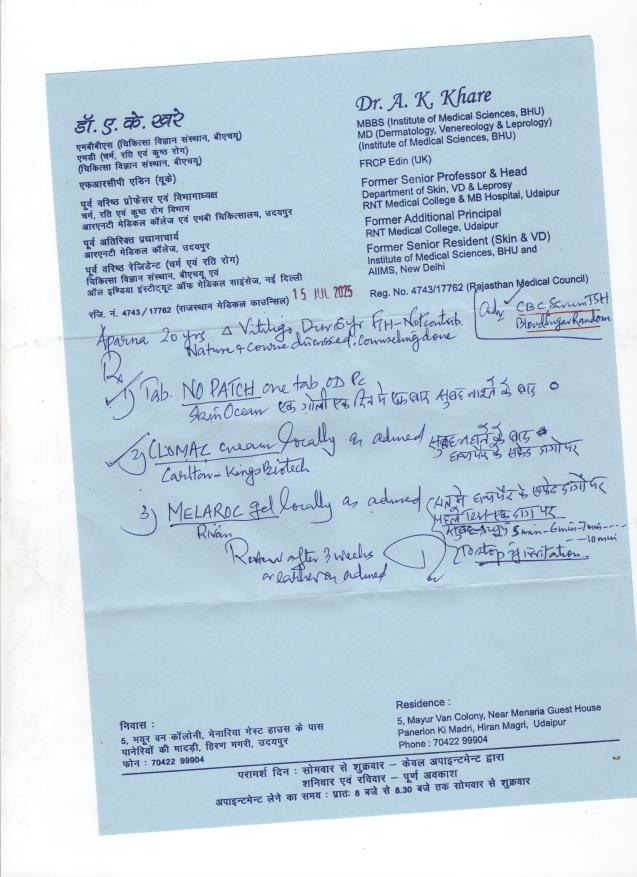 डॉ. ए. के. खरे
एमबीबीएस (चिकित्सा विज्ञान संस्थान, बीएचयू)
एमडी (चर्म, रति एवं कुष्ठ रोग)
(चिकित्सा विज्ञान संस्थान, बीएचयू)
एफआरसीपी एडिन (यूके)
पूर्व वरिष्ठ प्रोफेसर एवं विभागाध्यक्ष
चर्म, रति एवं कुष्ठ रोग विभाग
आरएनटी मेडिकल कॉलेज एवं एमबी चिकित्सालय, उदयपुर
पूर्व अतिरिक्त प्रधानाचार्य
आरएनटी मेडिकल कॉलेज, उदयपुर
पूर्व वरिष्ठ रेजिडेन्ट (चर्म एवं रति रोग)
चिकित्सा विज्ञान संस्थान, बीएचयू एवं
ऑल इण्डिया इंस्टीट्यूट ऑफ मेडिकल साइंसेज, नई दिल्ली
रजि. नं. 4743/17762 (राजस्थान मेडिकल काउन्सिल)
Dr. A. K. Khare
MBBS (Institute of Medical Sciences, BHU)
MD (Dermatology, Venereology & Leprology)
(Institute of Medical Sciences, BHU)
FRCP Edin (UK)
Former Senior Professor & Head
Department of Skin, VD & Leprosy
RNT Medical College & MB Hospital, Udaipur
Former Additional Principal
RNT Medical College, Udaipur
Former Senior Resident (Skin & VD)
Institute of Medical Sciences, BHU and
AIIMS, New Delhi
Reg. No. 4743/17762 (Rajasthan Medical Council)
15 JUL 2025
Adv CBC Serum TSH
Blood Sugar Random
Aparna 20 yrs Δ Vitiligo, Dur 6 yr F/H - Not contrib.
Nature & Course discussed, Counseling done
Rx
1) Tab. NO PATCH one tab OD PC
Skin Ocean एक गोली एक दिन मे एक बार सुबह नाश्ते के बाद
2) CLOMAC cream locally as advised सुबह नहाने के बाद
Carlton - Kings Biotech हाथ पैर के सफेद दागो पर
3) MELAROC gel locally as advised हाथ पैर के सफेद दागों पर
Rivan पहले Test एक दाग पर
5 min - 6 min - 7 min ----
-- 10 min
Review after 3 weeks
or earlier as advised
to stop if irritation
निवास :
5, मयूर वन कॉलोनी, मेनारिया गेस्ट हाउस के पास
पानेरियों की मादड़ी, हिरण मगरी, उदयपुर
फोन : 70422 99904
Residence :
5, Mayur Van Colony, Near Menaria Guest House
Panerion Ki Madri, Hiran Magri, Udaipur
Phone : 70422 99904
परामर्श दिन : सोमवार से शुक्रवार – केवल अपाइन्टमेन्ट द्वारा
शनिवार एवं रविवार – पूर्ण अवकाश
अपाइन्टमेन्ट लेने का समय : प्रातः 8 बजे से 8.30 बजे तक सोमवार से शुक्रवार